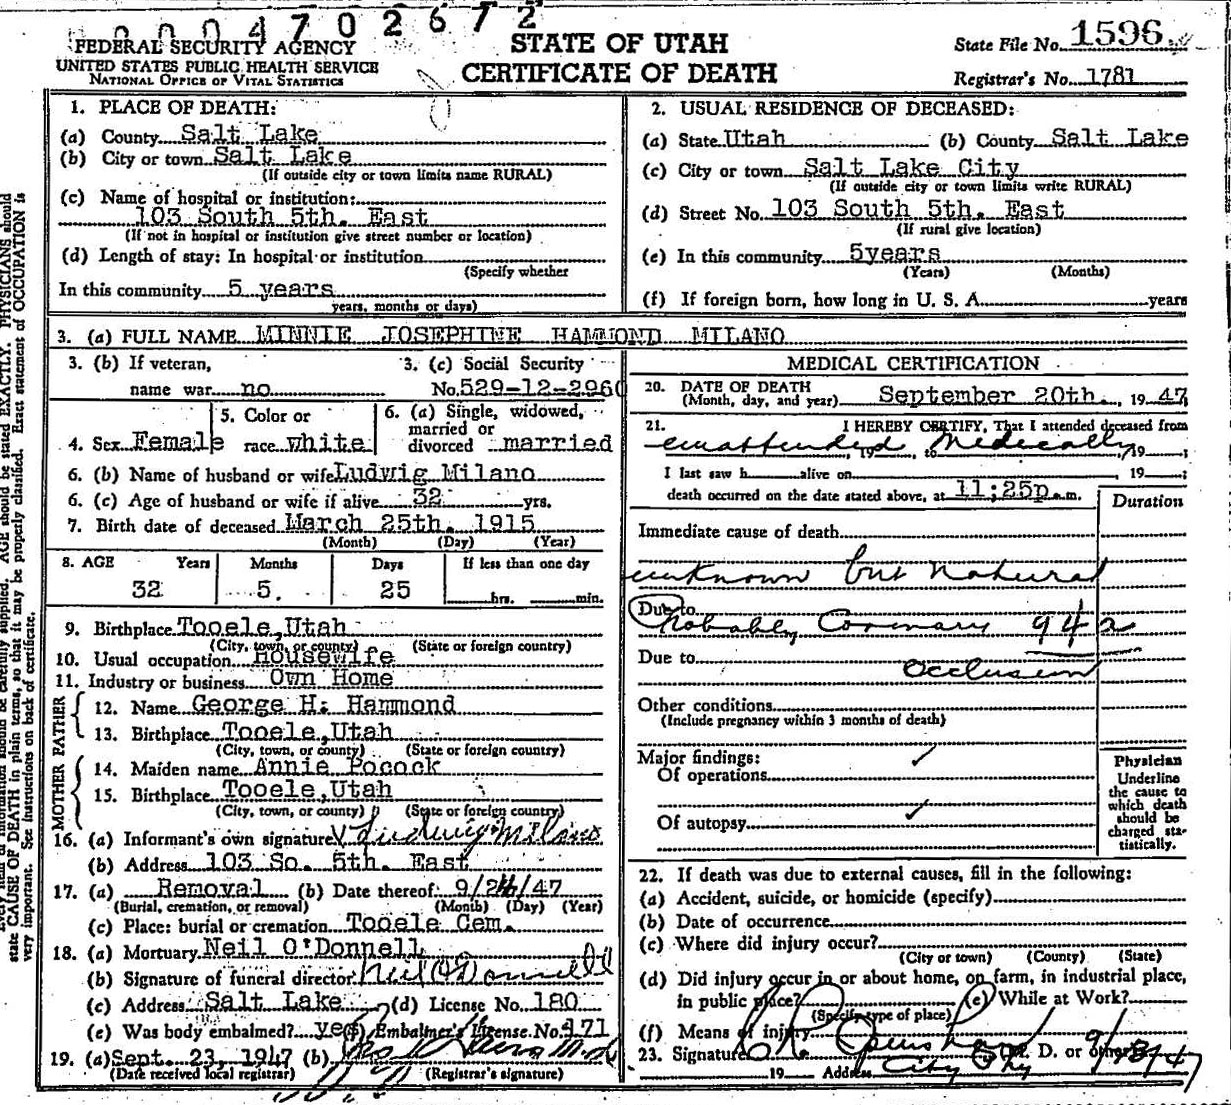 0004702672
FEDERAL SECURITY AGENCY
UNITED STATES PUBLIC HEALTH SERVICE
NATIONAL OFFICE OF VITAL STATISTICS
STATE OF UTAH
CERTIFICATE OF DEATH
State File No. 1596
Registrar's No. 1781
1. PLACE OF DEATH:
(a) County Salt Lake
(b) City or town Salt Lake
(If outside city or town limits name RURAL)
(c) Name of hospital or institution:
103 South 5th. East
(If not in hospital or institution give street number or location)
(d) Length of stay: In hospital or institution
(Specify whether
In this community 5 years
years, months or days)
2. USUAL RESIDENCE OF DECEASED:
(a) State Utah (b) County Salt Lake
(c) City or town Salt Lake City
(If outside city or town limits write RURAL)
(d) Street No. 103 South 5th. East
(If rural give location)
(e) In this community 5years
(Years) (Months)
(f) If foreign born, how long in U. S. A. years
3. (a) FULL NAME MINNIE JOSEPHINE HAMMOND MILANO
3. (b) If veteran,
name war no
3. (c) Social Security
No. 529-12-2960
4. Sex Female
5. Color or
race white
6. (a) Single, widowed,
married or
divorced married
6. (b) Name of husband or wife Ludwig Milano
6. (c) Age of husband or wife if alive 32 yrs.
7. Birth date of deceased March 25th. 1915
(Month) (Day) (Year)
8. AGE Years Months Days If less than one day
32 5 25 hrs. min.
9. Birthplace Tooele, Utah
(City, town, or county) (State or foreign country)
10. Usual occupation Housewife
11. Industry or business Own Home
FATHER
12. Name George H. Hammond
13. Birthplace Tooele, Utah
(City, town, or county) (State or foreign country)
MOTHER
14. Maiden name Annie Pocock
15. Birthplace Tooele, Utah
(City, town, or county) (State or foreign country)
16. (a) Informant's own signature Ludwig Milano
(b) Address 103 So. 5th. East
17. (a) Removal (b) Date thereof 9/24/47
(Burial, cremation, or removal) (Month) (Day) (Year)
(c) Place: burial or cremation Tooele Cem.
18. (a) Mortuary Neil O'Donnell
(b) Signature of funeral director Neil O'Donnell
(c) Address Salt Lake (d) License No. 180
(e) Was body embalmed? yes (f) Embalmer's License No. 471
19. (a) Sept. 23, 1947 (b)
(Date received local registrar) (Registrar's signature)
MEDICAL CERTIFICATION
20. DATE OF DEATH
(Month, day, and year) September 20th. 19 47
21. I HEREBY CERTIFY, That I attended deceased from
unattended, 19 to Medically, 19 ;
I last saw h alive on 19 ;
death occurred on the date stated above, at 11;25p.m.
Duration
Immediate cause of death
unknown but natural
Due to
Probably Coronary 94a
Due to
occlusion
Other conditions
(Include pregnancy within 3 months of death)
Major findings:
Of operations ✓
Of autopsy ✓
Physician
Underline
the cause to
which death
should be
charged sta-
tistically.
22. If death was due to external causes, fill in the following:
(a) Accident, suicide, or homicide (specify)
(b) Date of occurrence
(c) Where did injury occur?
(City or town) (County) (State)
(d) Did injury occur in or about home, on farm, in industrial place,
in public place? (e) While at Work?
(Specify type of place)
(f) Means of injury
23. Signature (M. D. or other)
19 Address City Phy
state CAUSE OF DEATH in plain terms, so that it may be properly classified. Exact statement of OCCUPATION is
very important. See instructions on back of certificate.